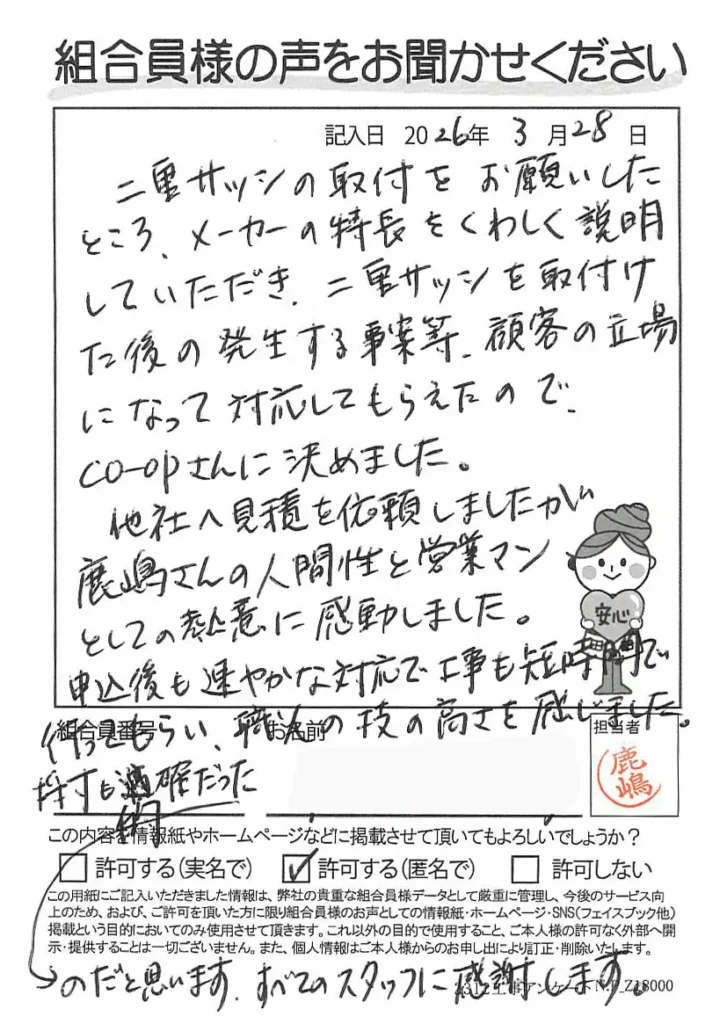 組合員様の声をお聞かせください
記入日 2026年 3月28日
二重サッシの取付をお願いした
ところ、メーカーの特長をくわしく説明
していただき、二重サッシを取付け
た後の発生する事案等、顧客の立場
になって対応してもらえたので、
CO-OPさんに決めました。
他社へ見積を依頼しましたが
鹿嶋さんの人間性と営業マン
としての熱意に感動しました。
安心
申込後も速やかな対応で工事も短時間で
組合員番号 お名前 担当者
行ってもらい、職人の技の高さを感じました。
鹿嶋
採寸も適確だった
この内容を情報紙やホームページなどに掲載させて頂いてもよろしいでしょうか?
□ 許可する(実名で) ☑ 許可する(匿名で) □ 許可しない
この用紙にご記入いただきました情報は、弊社の貴重な組合員様データとして厳重に管理し、今後のサービス向
上のため、および、ご許可を頂いた方に限り組合員様のお声としての情報紙・ホームページ・SNS(フェイスブック他)
掲載という目的においてのみ使用させて頂きます。これ以外の目的で使用すること、ご本人様の許可なく外部へ開
示・提供することは一切ございません。また、個人情報はご本人様からのお申し出により訂正・削除いたします。
のだと思います、すべてのスタッフに感謝します。
2312工事アンケートN.P_Z18000